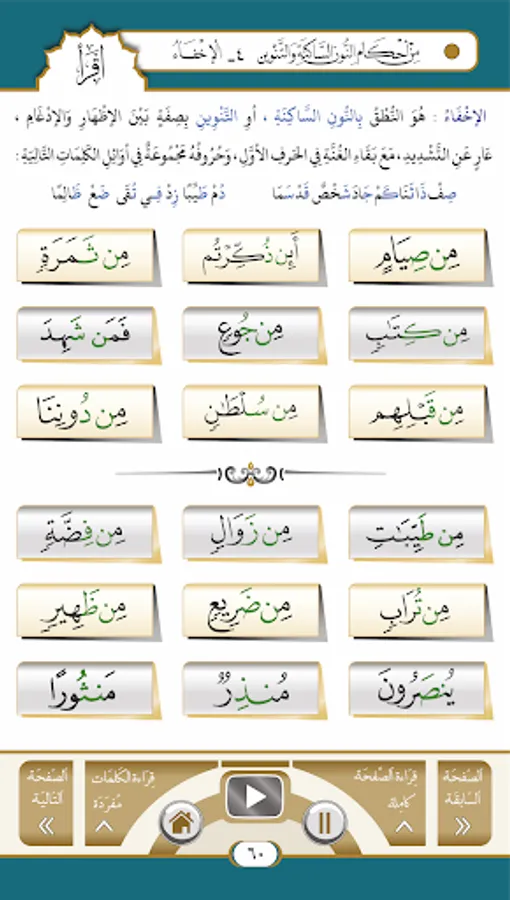 مِنْ أَحْكَامِ النُّونِ السَّاكِنَةِ وَالتَّنْوِينِ ٤ـ الْإِخْفَاءُ
اقْرَأْ
الإِخْفَاءُ : هُوَ النُّطْقُ بِالنُّونِ السَّاكِنَةِ ، أَوِ التَّنْوِينِ بِصِفَةٍ بَيْنَ الإِظْهَارِ وَالإِدْغَامِ ،
عَارٍ عَنِ التَّشْدِيدِ ، مَعَ بَقَاءِ الغُنَّةِ فِي الحَرْفِ الأَوَّلِ ، وَحُرُوفُهُ مَجْمُوعَةٌ فِي أَوَائِلِ الكَلِمَاتِ التَّالِيَةِ :
صِفْ ذَا ثَنَا كَمْ جَادَ شَخْصٌ قَدْ سَمَا دُمْ طَيِّبًا زِدْ فِي تُقًى ضَعْ ظَالِمًا
مِن صِيَامٍ أَئِن ذُكِّرْتُم مِن ثَمَرَةٍ
مِن كِتَٰبٍ مِن جُوعٍ فَمَن شَهِدَ
مِن قَبْلِهِم مِن سُلْطَٰنٍ مِن دُونِنَا
مِن طَيِّبَٰتِ مِن زَوَالٍ مِن فِضَّةٍ
مِن تُرَابٍ مِن ضَرِيعٍ مِن ظَهِيرٍ
يُنصَرُونَ مُنذِرٌ مَنثُورًا
الصَّفْحَة السَّابِقَة
قِرَاءَة الصَّفْحَة كَامِلَة
قِرَاءَة الكَلِمَات مُفْرَدَة
الصَّفْحَة التَّالِيَة
٦٠